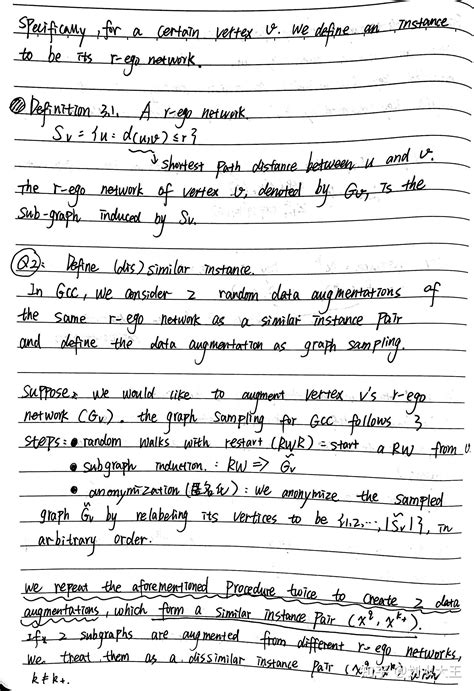 Specifically, for a certain vertex v. we define an instance
to be its r-ego network.
Definition 3.1. A r-ego network.
Sv = {u: d(u,v) ≤ r}
shortest path distance between u and v.
the r-ego network of vertex v, denoted by Gv, is the
sub-graph induced by Sv.
Q2: Define (dis)similar instance.
In GCC, we consider 2 random data augmentations of
the same r-ego network as a similar instance pair
and define the data augmentation as graph sampling.
Suppose, we would like to augment vertex v's r-ego
network (Gv). the graph sampling for GCC follows 3
steps: • random walks with restart (RWR) = start a RW from v
• subgraph induction. : RW => G̃v
• anonymization (匿名化): we anonymize the sampled
graph G̃v by relabeling its vertices to be {1,2,...,|S̃v|}, in
arbitrary order.
we repeat the aforementioned procedure twice to create 2 data
augmentations, which form a similar instance pair (x^q, x^k+).
If 2 subgraphs are augmented from different r-ego networks,
we treat them as a dissimilar instance pair (x^q, x^k) with
k ≠ k+.